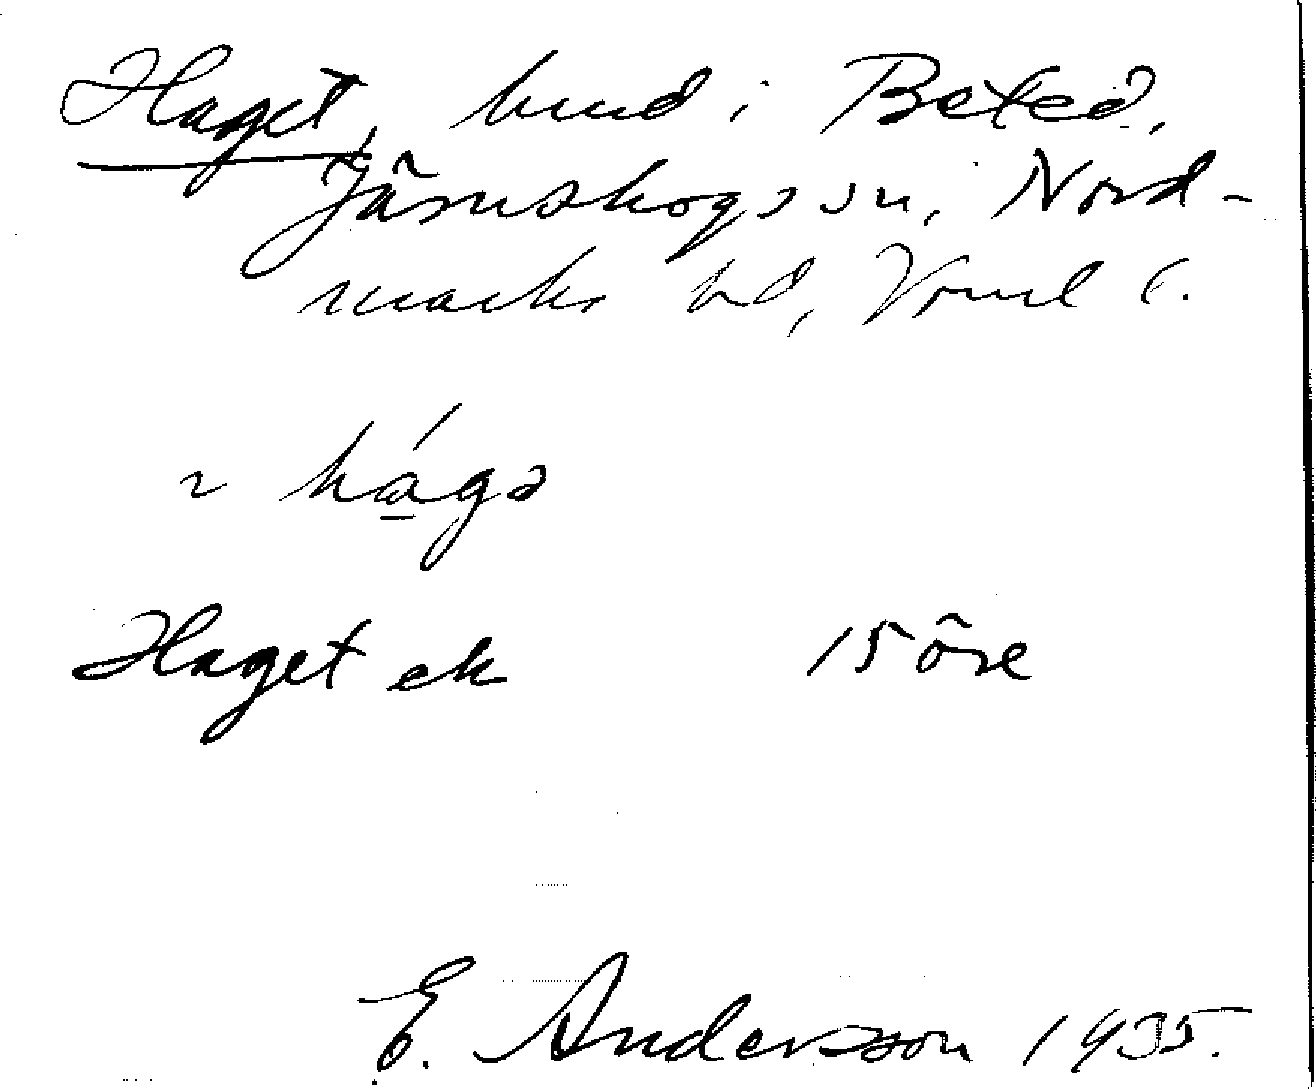 Haget, hmd i Beted,
Järnskogs sn, Nord-
marks hd, Vrml l.
~ hága
Haget ek 15 öre
E. Andersson 1935.